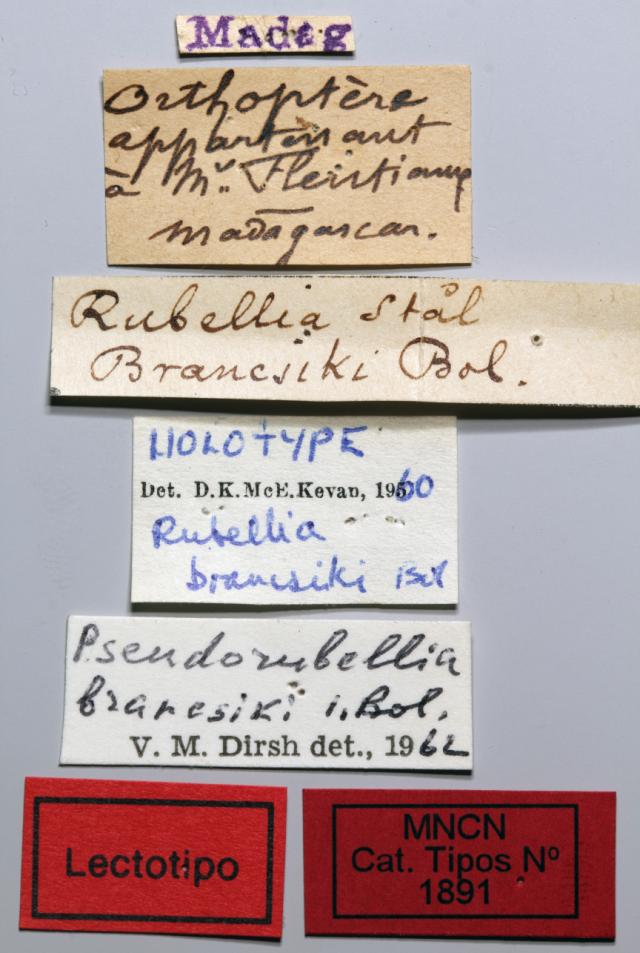 Madag
Orthoptère
appartenant
à Mr. Fleutiaux
Madagascar.
Rubellia Stål
Brancsiki Bol.
HOLOTYPE
Det. D.K.McE.Kevan, 1960
Rubellia
brancsiki Bol
Pseudorubellia
brancsiki I. Bol.
V. M. Dirsh det., 1962
Lectotipo
MNCN
Cat. Tipos Nº
1891